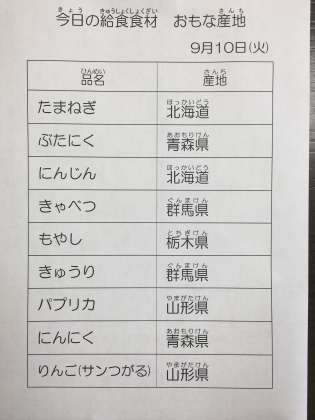 今日の給食食材　おもな産地
9月10日(火)
品名　産地
たまねぎ　北海道
ぶたにく　青森県
にんじん　北海道
きゃべつ　群馬県
もやし　栃木県
きゅうり　群馬県
パプリカ　山形県
にんにく　青森県
りんご(サンつがる)　山形県